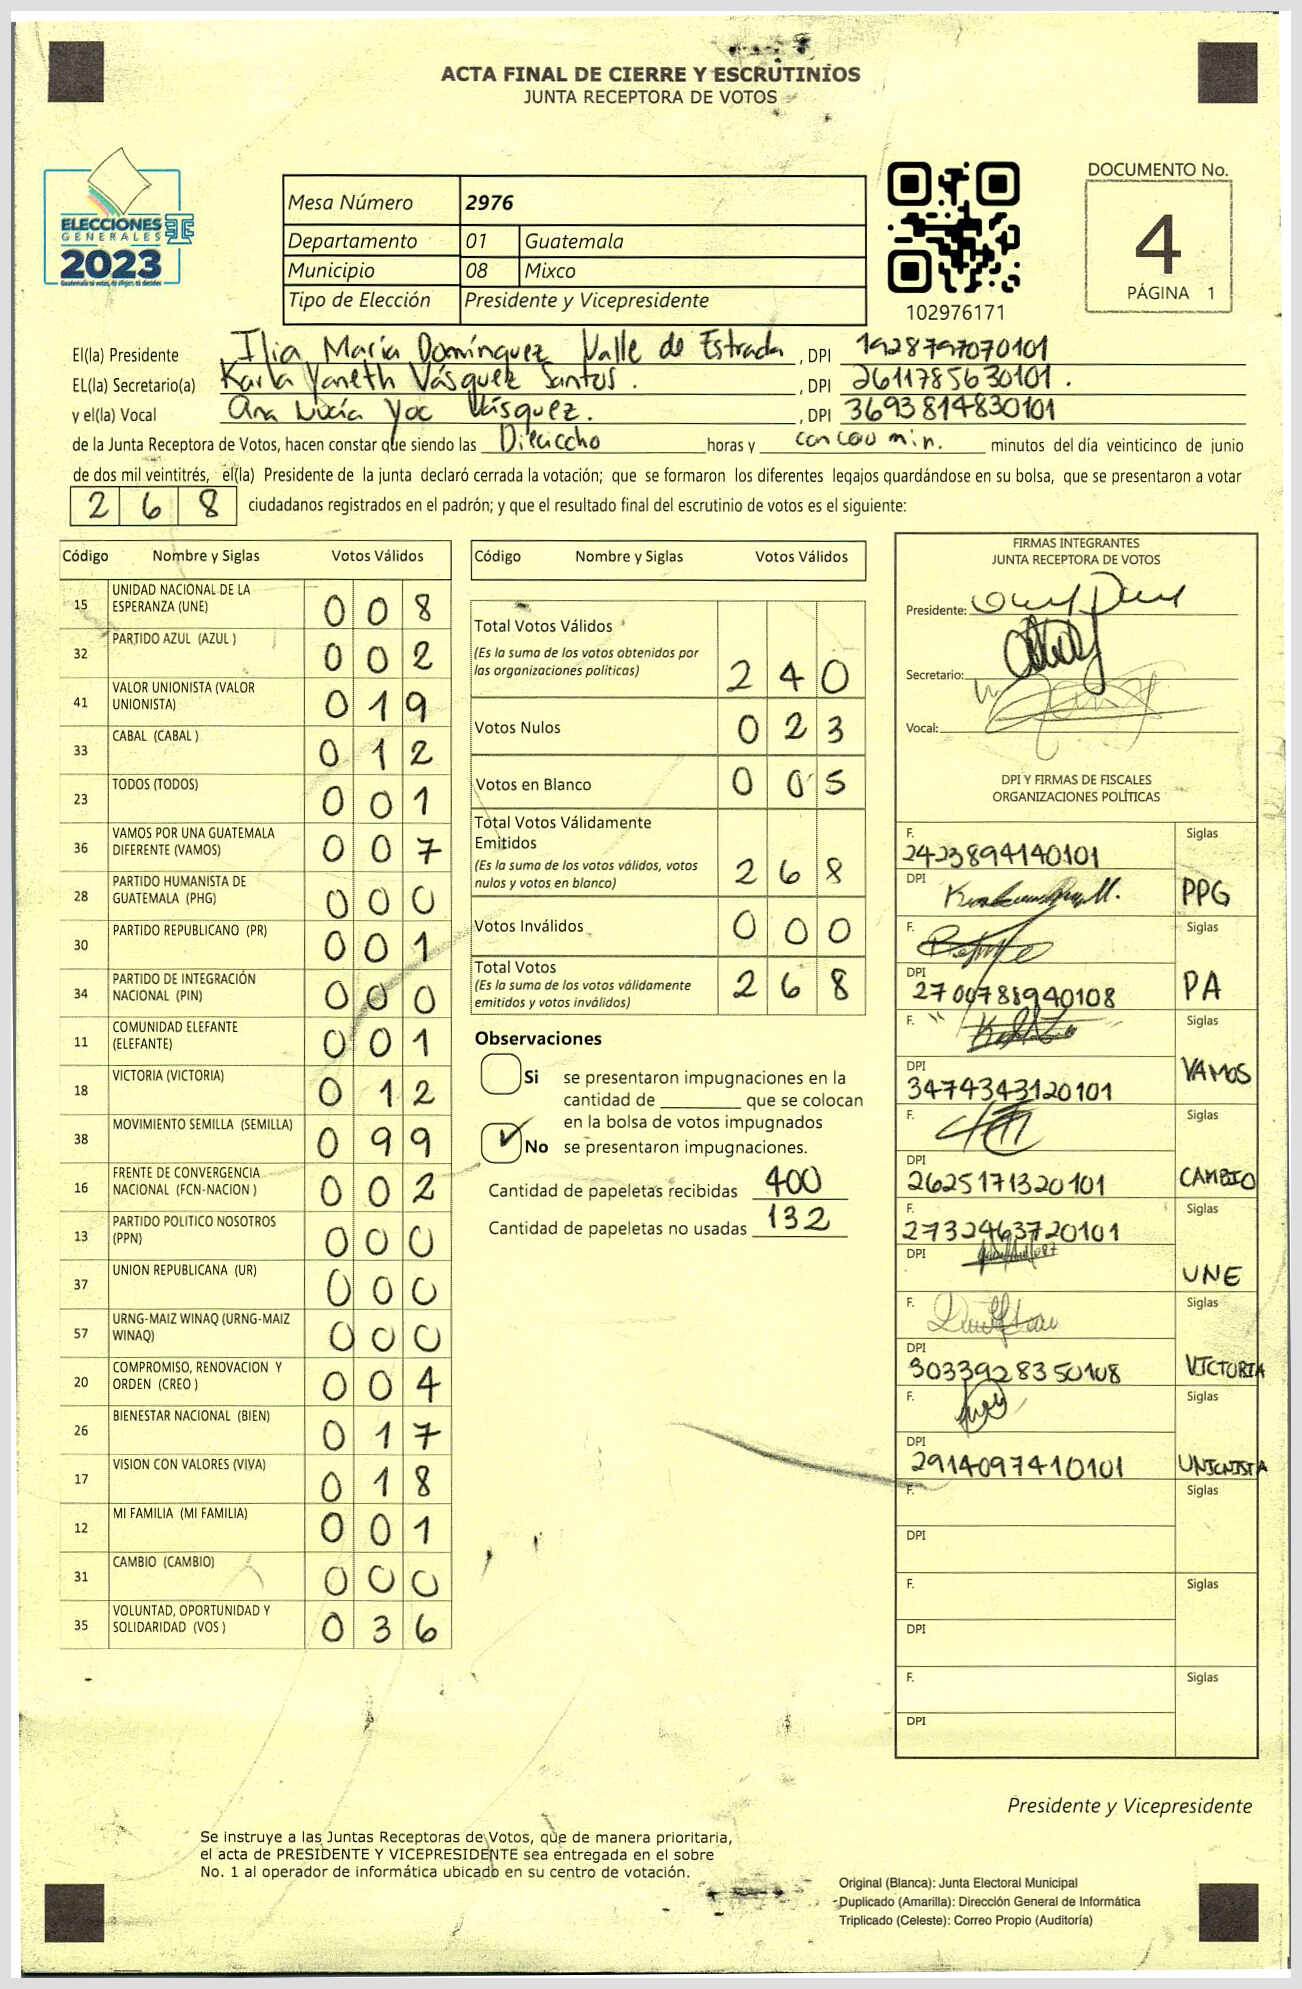 ACTA FINAL DE CIERRE Y ESCRUTINIOS
JUNTA RECEPTORA DE VOTOS
ELECCIONES
GENERALES
2023
Guatemala tú votas, tú eliges, tú decides
Mesa Número 2976
Departamento 01 Guatemala
Municipio 08 Mixco
Tipo de Elección Presidente y Vicepresidente
102976171
DOCUMENTO No.
4
PÁGINA 1
El(la) Presidente Ilia María Domínguez Valle de Estrada, DPI 1928797070101
EL(la) Secretario(a) Karla Yaneth Vásquez Santos., DPI 2611785630101.
y el(la) Vocal Ana Lucía Yoc Vásquez., DPI 3693814830101
de la Junta Receptora de Votos, hacen constar que siendo las Dieciocho horas y con cero min. minutos del día veinticinco de junio
de dos mil veintitrés, el(la) Presidente de la junta declaró cerrada la votación; que se formaron los diferentes legajos guardándose en su bolsa, que se presentaron a votar
268 ciudadanos registrados en el padrón; y que el resultado final del escrutinio de votos es el siguiente:
Código Nombre y Siglas Votos Válidos
15 UNIDAD NACIONAL DE LA ESPERANZA (UNE) 008
32 PARTIDO AZUL (AZUL ) 002
41 VALOR UNIONISTA (VALOR UNIONISTA) 019
33 CABAL (CABAL ) 012
23 TODOS (TODOS) 001
36 VAMOS POR UNA GUATEMALA DIFERENTE (VAMOS) 007
28 PARTIDO HUMANISTA DE GUATEMALA (PHG) 000
30 PARTIDO REPUBLICANO (PR) 001
34 PARTIDO DE INTEGRACIÓN NACIONAL (PIN) 000
11 COMUNIDAD ELEFANTE (ELEFANTE) 001
18 VICTORIA (VICTORIA) 012
38 MOVIMIENTO SEMILLA (SEMILLA) 099
16 FRENTE DE CONVERGENCIA NACIONAL (FCN-NACION ) 002
13 PARTIDO POLITICO NOSOTROS (PPN) 000
37 UNION REPUBLICANA (UR) 000
57 URNG-MAIZ WINAQ (URNG-MAIZ WINAQ) 000
20 COMPROMISO, RENOVACION Y ORDEN (CREO ) 004
26 BIENESTAR NACIONAL (BIEN) 017
17 VISION CON VALORES (VIVA) 018
12 MI FAMILIA (MI FAMILIA) 001
31 CAMBIO (CAMBIO) 000
35 VOLUNTAD, OPORTUNIDAD Y SOLIDARIDAD (VOS ) 036
Código Nombre y Siglas Votos Válidos
Total Votos Válidos
(Es la suma de los votos obtenidos por
las organizaciones políticas) 240
Votos Nulos 023
Votos en Blanco 005
Total Votos Válidamente
Emitidos
(Es la suma de los votos válidos, votos
nulos y votos en blanco) 268
Votos Inválidos 000
Total Votos
(Es la suma de los votos válidamente
emitidos y votos inválidos) 268
Observaciones
Si se presentaron impugnaciones en la
cantidad de ________ que se colocan
en la bolsa de votos impugnados
No se presentaron impugnaciones.
Cantidad de papeletas recibidas 400
Cantidad de papeletas no usadas 132
FIRMAS INTEGRANTES
JUNTA RECEPTORA DE VOTOS
Presidente:
Secretario:
Vocal:
DPI Y FIRMAS DE FISCALES
ORGANIZACIONES POLÍTICAS
F. 2423894140101 Siglas
DPI PPG
F. Siglas
DPI 2700788940108 PA
F. Siglas
DPI 3474343120101 VAMOS
F. Siglas
DPI 2625171320101 CAMBIO
F. 2732463720101 Siglas
DPI UNE
F. Siglas
DPI 3033928350108 VICTORIA
F. Siglas
DPI 2914097410101 UNIONISTA
F. Siglas
DPI
F. Siglas
DPI
F. Siglas
DPI
Presidente y Vicepresidente
Se instruye a las Juntas Receptoras de Votos, que de manera prioritaria,
el acta de PRESIDENTE Y VICEPRESIDENTE sea entregada en el sobre
No. 1 al operador de informática ubicado en su centro de votación.
Original (Blanca): Junta Electoral Municipal
Duplicado (Amarilla): Dirección General de Informática
Triplicado (Celeste): Correo Propio (Auditoría)